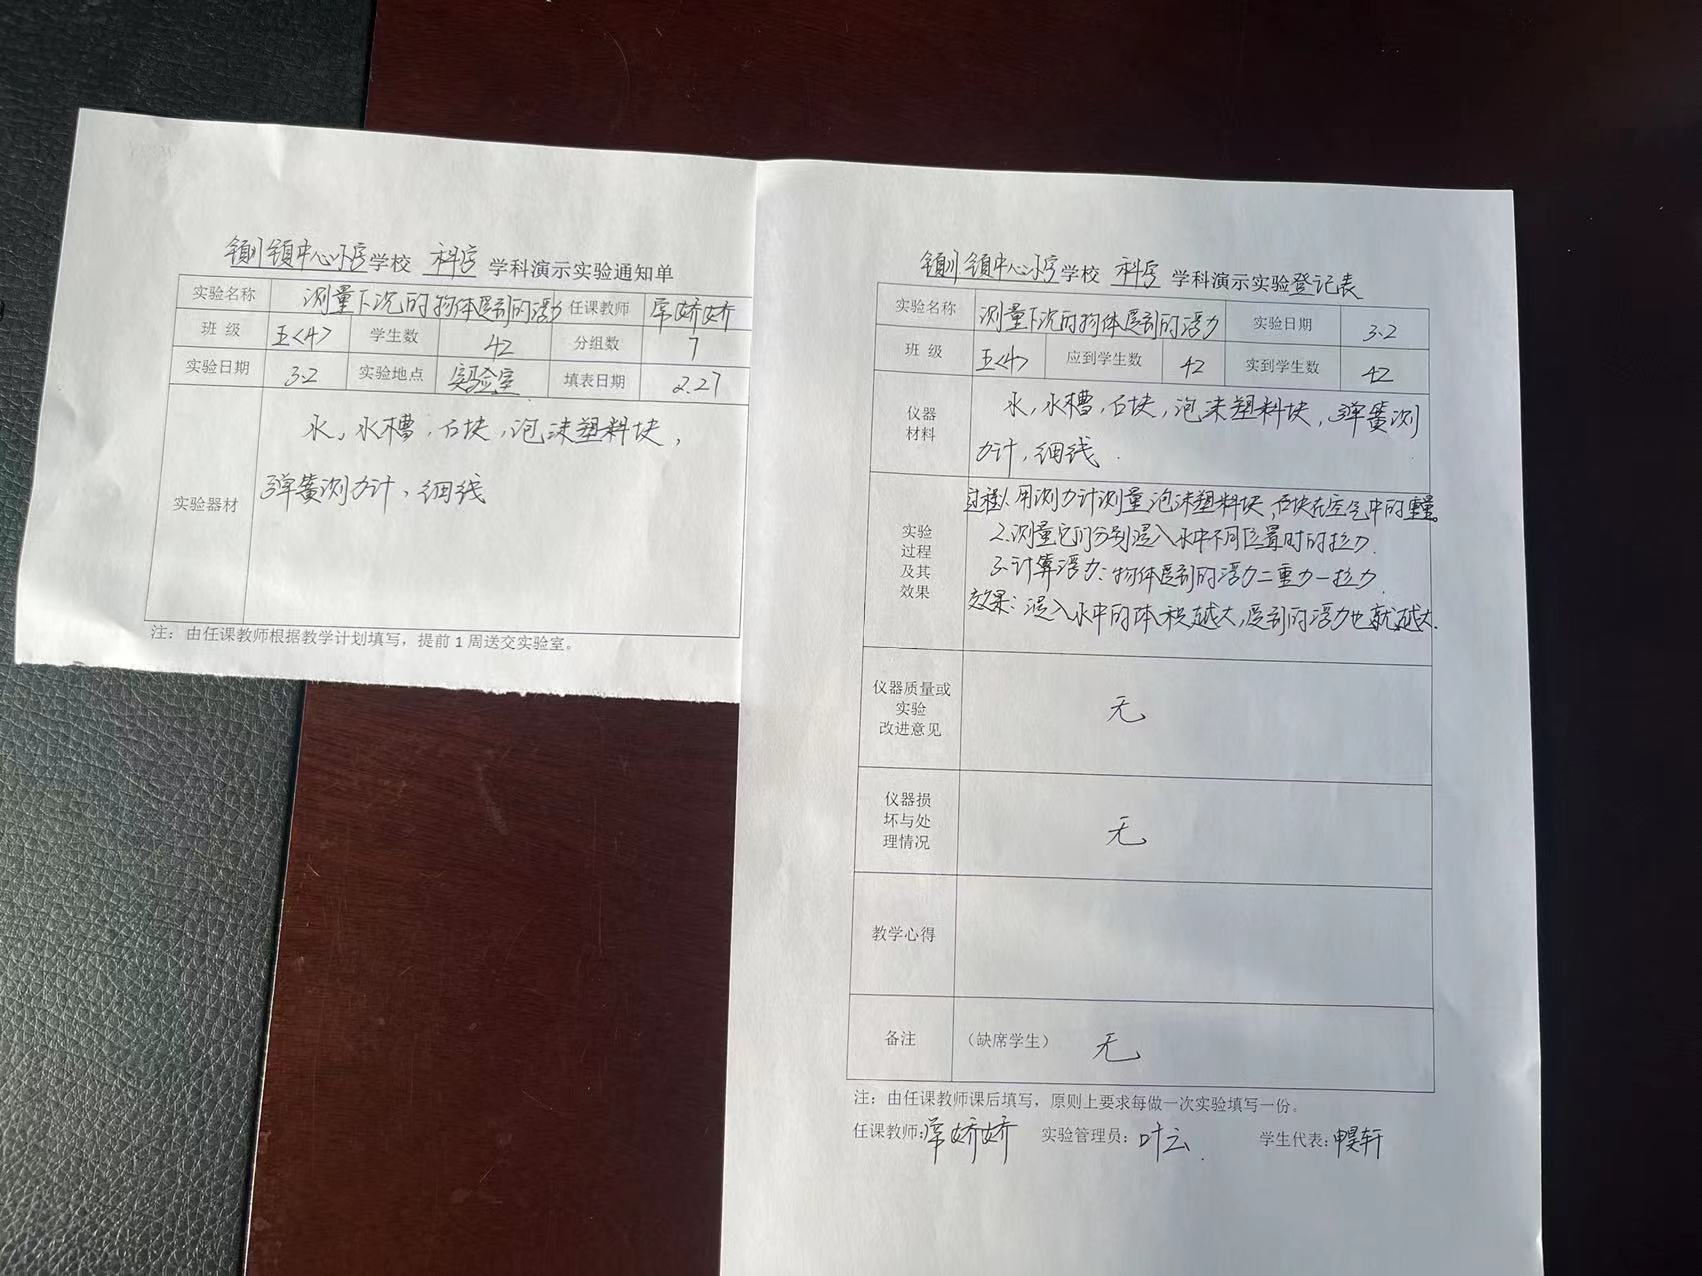 镇川镇中心小学学校 科学 学科演示实验通知单
实验名称 测量下沉的物体受到的浮力 任课教师 常娇娇
班 级 五<4> 学生数 42 分组数 7
实验日期 3.2 实验地点 实验室 填表日期 2.27
实验器材
水，水槽，石块，泡沫塑料块，
弹簧测力计，细线
注：由任课教师根据教学计划填写，提前 1 周送交实验室。
镇川镇中心小学学校 科学 学科演示实验登记表
实验名称 测量下沉的物体受到的浮力 实验日期 3.2
班 级 五<4> 应到学生数 42 实到学生数 42
仪器
材料
水，水槽，石块，泡沫塑料块，弹簧测
力计，细线.
实验
过程
及其
效果
过程:1.用测力计测量泡沫塑料块、石块在空气中的重量。
2.测量它们分别浸入水中不同位置时的拉力.
3.计算浮力：物体受到的浮力=重力-拉力
效果：浸入水中的体积越大，受到的浮力也就越大.
仪器质量或
实验
改进意见
无
仪器损
坏与处
理情况
无
教学心得
备注 （缺席学生） 无
注：由任课教师课后填写，原则上要求每做一次实验填写一份。
任课教师:常娇娇 实验管理员：叶云 学生代表:轩